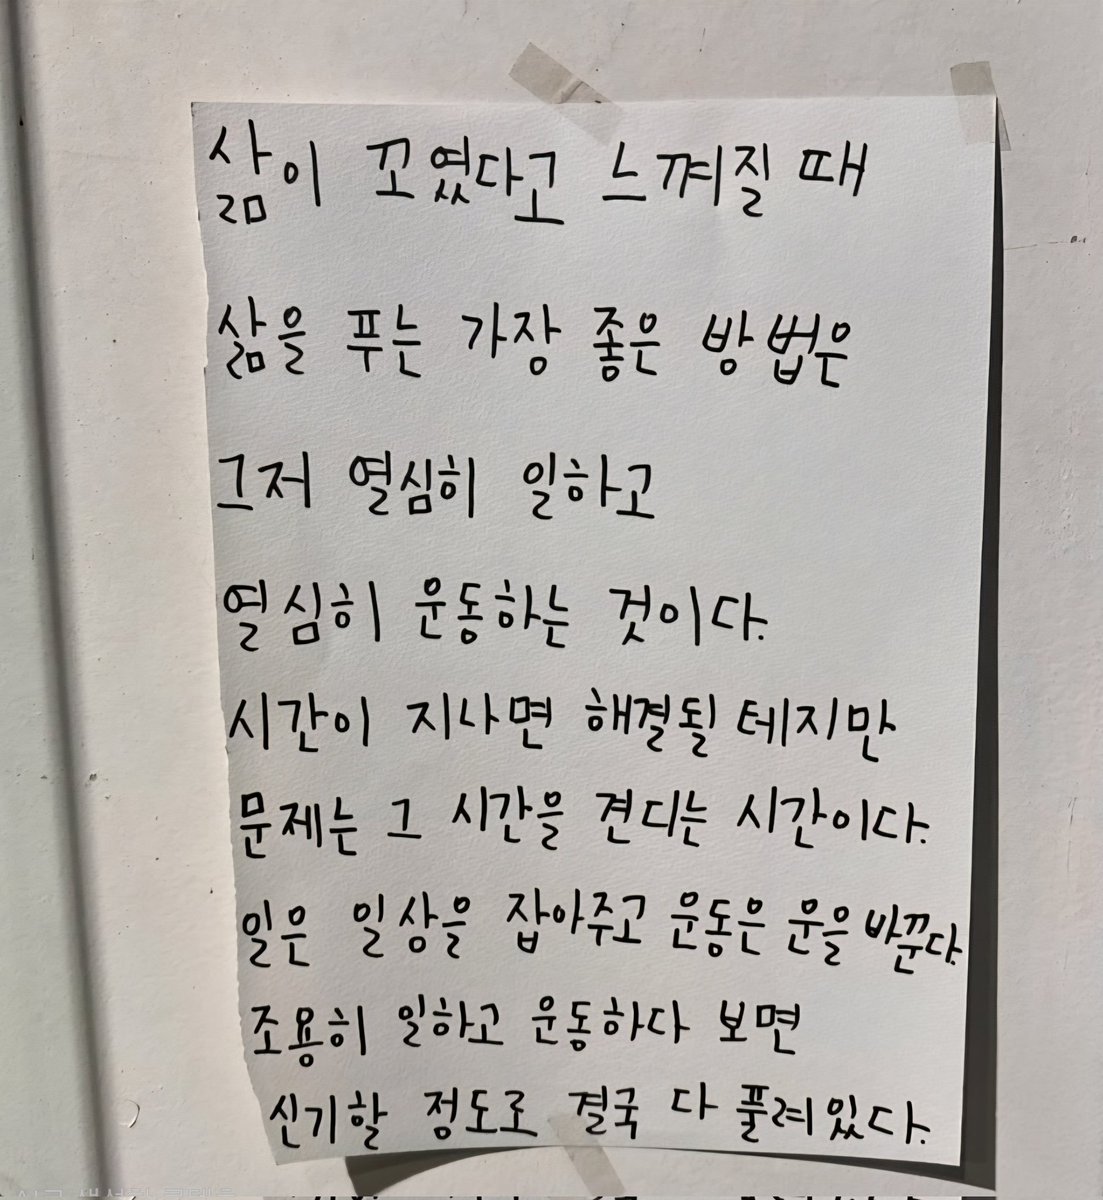 삶이 꼬였다고 느껴질 때
삶을 푸는 가장 좋은 방법은
그저 열심히 일하고
열심히 운동하는 것이다.
시간이 지나면 해결될 테지만
문제는 그 시간을 견디는 시간이다.
일은 일상을 잡아주고 운동은 운을 바꾼다.
조용히 일하고 운동하다 보면
신기할 정도로 결국 다 풀려있다.